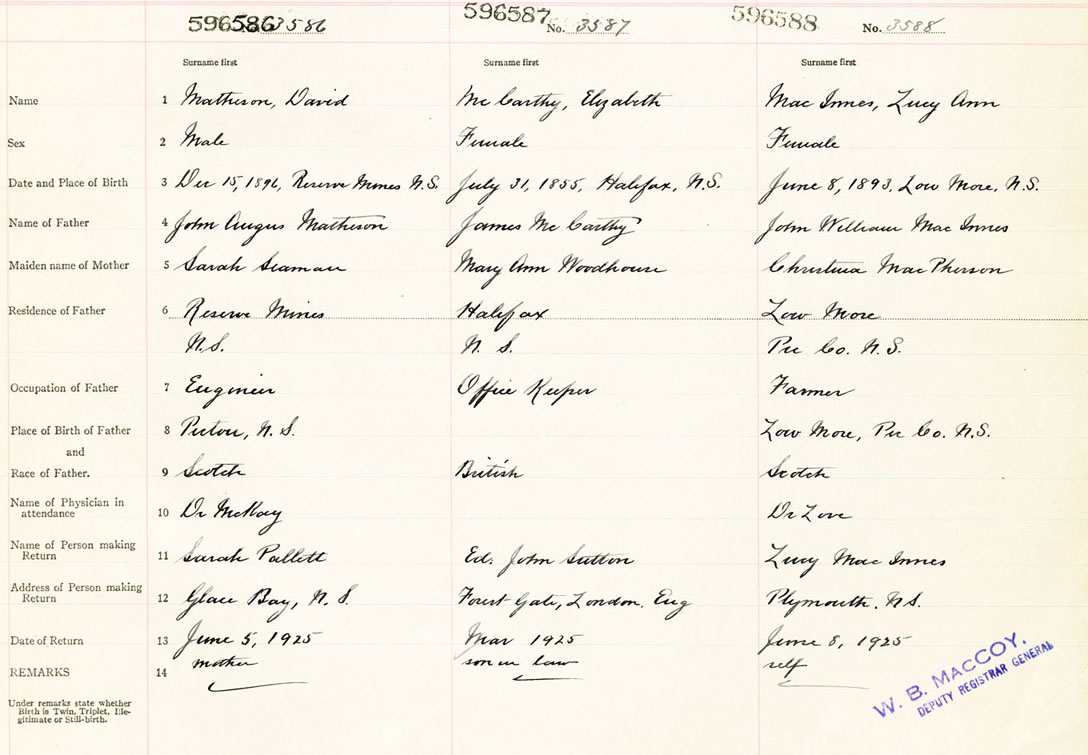 596586 3586 596587 No. 3587 596588 No. 3588
Surname first Surname first Surname first
Name 1 Matheson, David Mc Carthy, Elizabeth Mac Innes, Lucy Ann
Sex 2 Male Female Female
Date and Place of Birth 3 Dec 15, 1896, Reserve Mines N.S. July 31, 1855, Halifax, N.S. June 8, 1893, Low More, N.S.
Name of Father 4 John Angus Matheson James Mc Carthy John William Mac Innes
Maiden name of Mother 5 Sarah Seaman Mary Ann Woodhouse Christina MacPherson
Residence of Father 6 Reserve Mines Halifax Low More
N.S. N. S. Pic Co. N.S.
Occupation of Father 7 Engineer Office Keeper Farmer
Place of Birth of Father 8 Pictou, N.S. Low More, Pic Co. N.S.
and
Race of Father. 9 Scotch British Scotch
Name of Physician in
attendance 10 Dr McKay Dr Love
Name of Person making
Return 11 Sarah Pallett Ed. John Sutton Lucy Mac Innes
Address of Person making
Return 12 Glace Bay, N.S. Forest Gate, London, Eng Plymouth, N.S.
Date of Return 13 June 5, 1925 Mar 1925 June 8, 1925
REMARKS 14 mother son in law self
W. B. MACCOY,
DEPUTY REGISTRAR GENERAL
Under remarks state whether
Birth is Twin, Triplet, Ille-
gitimate or Still-birth.